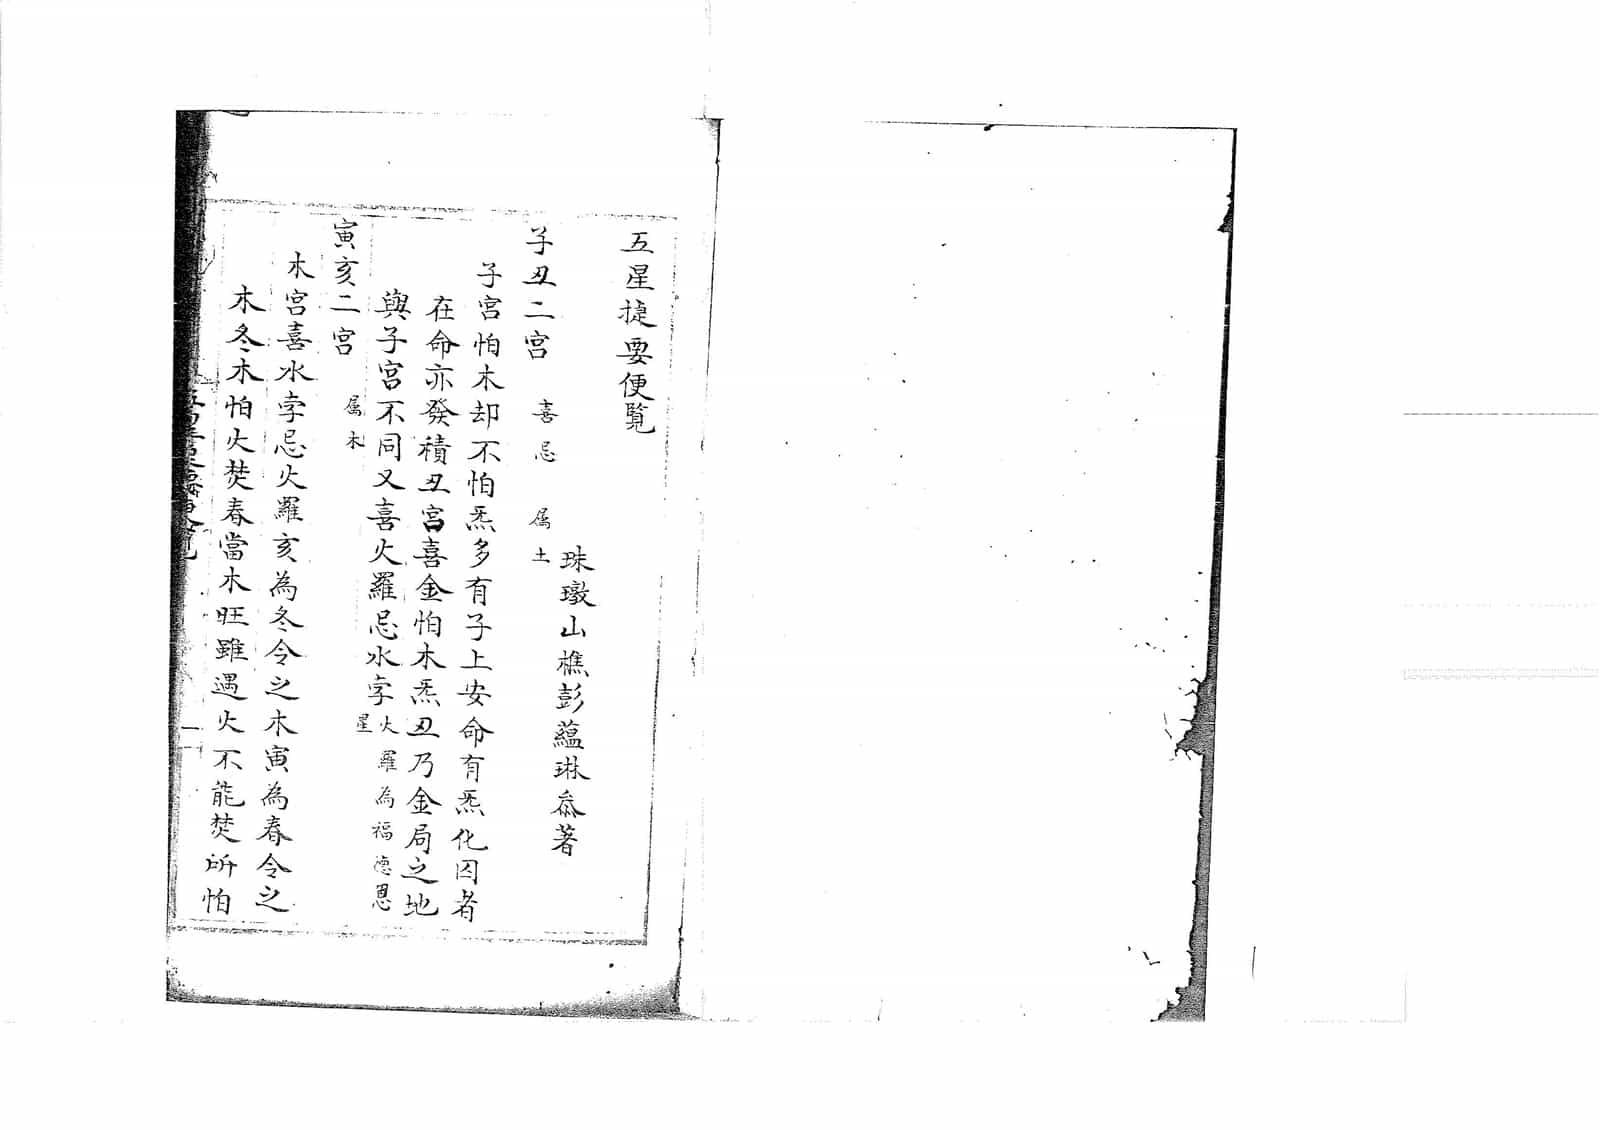 五星捷要便覧
珠璥山樵彭蘊琳叅著
子丑二宮 喜忌 属土
子宮怕木却不怕炁多有子上安命有炁化囚者
在命亦發積丑宮喜金怕木炁丑乃金局之地
與子宮不同又喜火羅忌水孛火羅為福德恩星
寅亥二宮 属木
木宮喜水孛忌火羅亥為冬令之木寅為春令之
木冬木怕火焚春當木旺雖遇火不能焚所怕
一